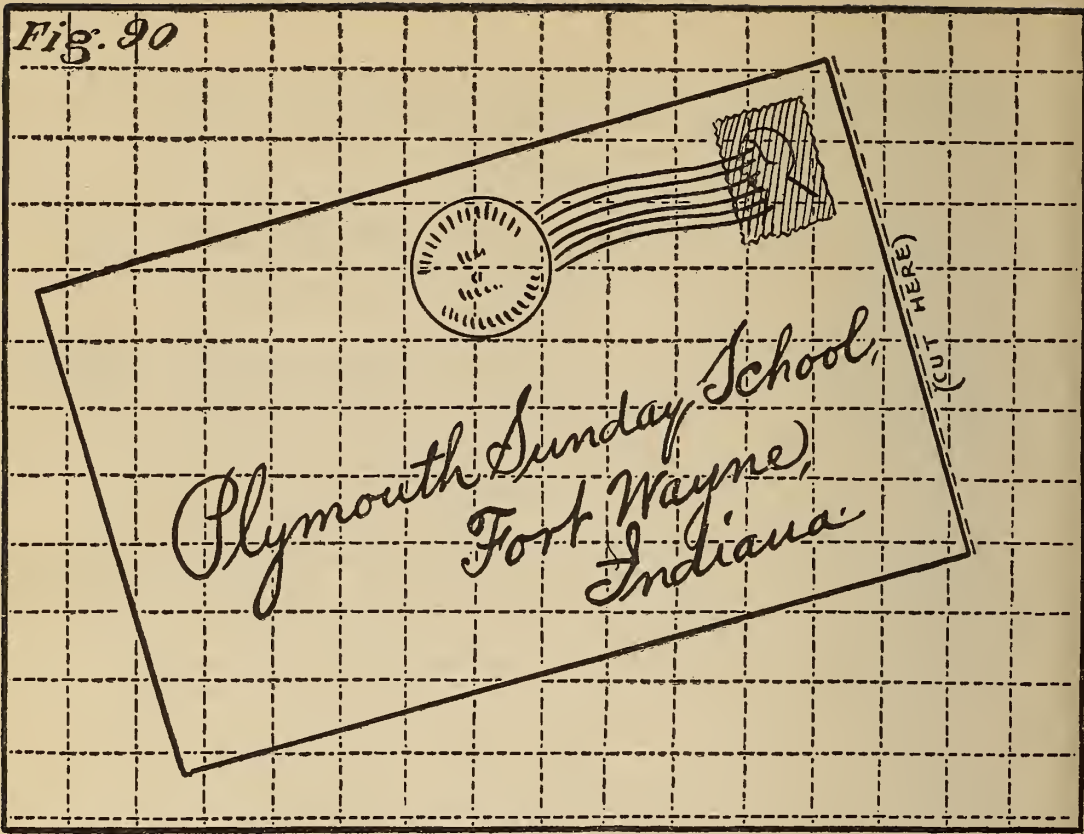 Fig. 90
(CUT HERE)
Plymouth Sunday School,
Fort Wayne,
Indiana.